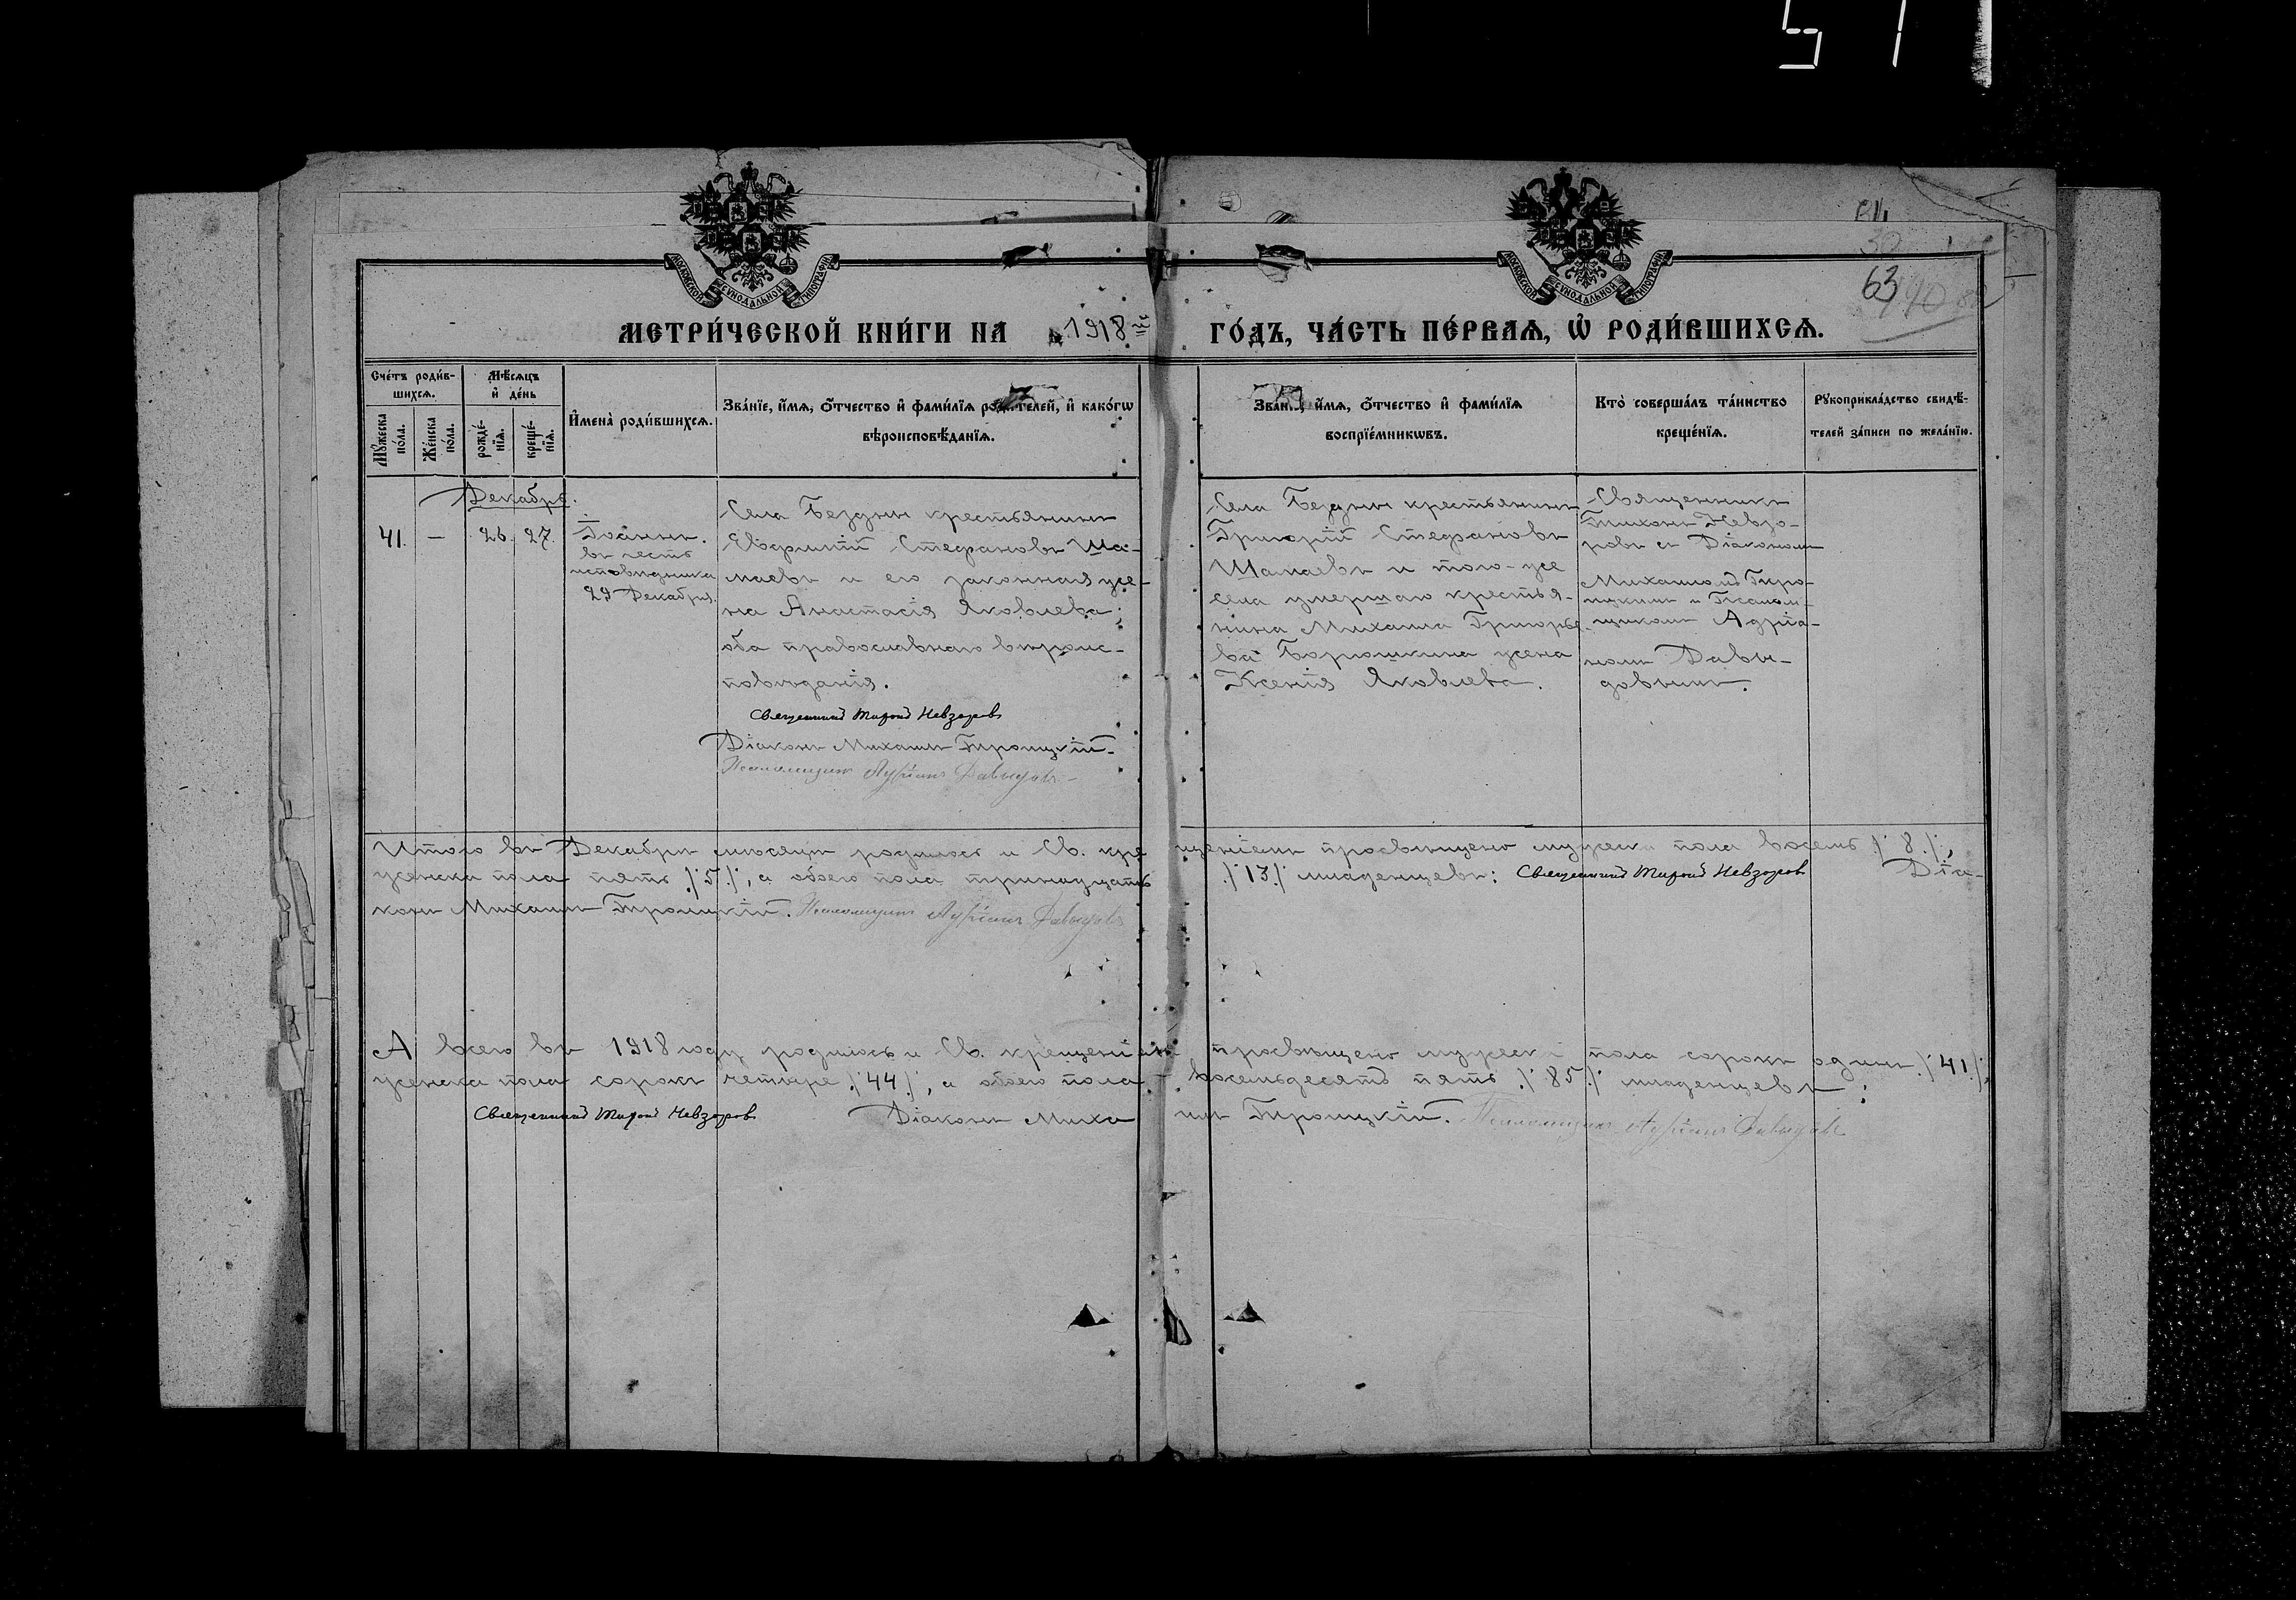 51
63
МОСКОВСКОЙ СѴНОДАЛЬНОЙ ТИПОГРАФІИ
МОСКОВСКОЙ СѴНОДАЛЬНОЙ ТИПОГРАФІИ
МЕТРИ́ЧЕСКОЙ КНИ́ГИ НА 1918 ГО́ДЪ, ЧА́СТЬ ПЕ́РВАѦ, Ѽ РОДИ́ВШИХСѦ.
Сче́тъ роди́в-
шихсѧ.
Мꙋ́жеска по́ла.
Же́нска по́ла.
Мѣ́сѧцъ
и҆ де́нь
рожде́-
нїѧ.
креще́-
нїѧ.
И҆мена̀ роди́вшихсѧ.
Зва́нїе, и҆́мѧ, ѻ҆́тчество и҆ фами́лїѧ роди́телей, и҆ како́гѡ
вѣроисповѣ́данїѧ.
и҆́мѧ, ѻ҆́тчество и҆ фами́лїѧ
воспрїе́мникѡвъ.
Кто̀ соверша́лъ та́инство
креще́нїѧ.
Рꙋкоприкла́дство свидѣ́-
телей за́писи по жела́нїю.
Декабрь.
41. — 26. 27.
Іоаннъ.
въ честь
исповѣдника
29 Декабря.
Села Бездны крестьянинъ
Евѳимій Стефановъ Ша-
маевъ и его законная же-
на Анастасія Яковлева;
оба православнаго вѣроис-
повѣданія.
Священникъ Тихонъ Невзоровъ
Діаконъ Михаилъ Троицкій.
Псаломщикъ Адріанъ Давыдовъ
Села Бездны крестьянинъ
Григорій Стефановъ
Шамаевъ и того-же
села умершаго крестья-
нина Михаила Григорье-
ва Борюшкина жена
Ксенія Яковлева.
Священникъ
Тихонъ Невзо-
ровъ съ Діакономъ
Михаиломъ Трои-
цкимъ и Псалом-
щикомъ Адріа-
номъ Давы-
довымъ.
Итого въ Декабрѣ мѣсяцѣ родилось и Св. крещеніемъ просвѣщено мужеска пола восемь ./8./.,
женска пола пять ./5./., а обоего пола тринадцать ./13./ младенцевъ: Священникъ Тихонъ Невзоровъ Діа-
конъ Михаилъ Троицкій. Псаломщикъ Адріанъ Давыдовъ
А всего въ 1918 году родилось и Св. крещеніемъ просвѣщено мужеска пола сорокъ одинъ ./41./.,
женска пола сорокъ четыре ./44./., а обоего пола — восемьдесятъ пять ./85./. младенцевъ:
Священникъ Тихонъ Невзоровъ Діаконъ Михаилъ Троицкій. Псаломщикъ Адріанъ Давыдовъ